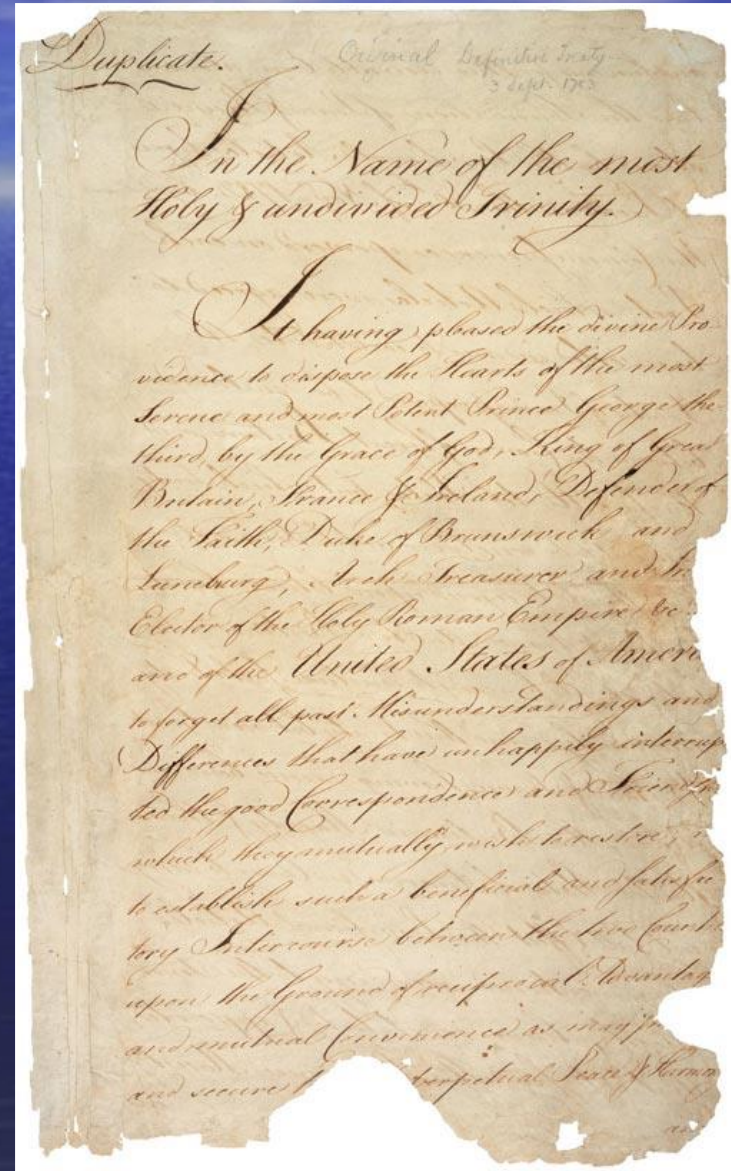 Duplicate.
Original Definitive Treaty
3 Sept. 1783
In the Name of the most
Holy & undivided Trinity.
It having pleased the divine Pro
vidence to dispose the Hearts of the most
Serene and most Potent Prince George the
third, by the Grace of God, King of Great
Britain, France & Ireland, Defender of
the Faith, Duke of Brunswick and
Luneburg, Arch Treasurer and
Elector of the Holy Roman Empire &c
and of the United States of Ameri
to forget all past Misunderstandings and
Differences that have unhappily interrup
ted the good Correspondence and Friends
which they mutually wish to restore;
to establish such a beneficial and satisfac
tory Intercourse between the two Countr
upon the Ground of reciprocal Advantag
and mutual Convenience as may
and secure perpetual Peace & Harmon